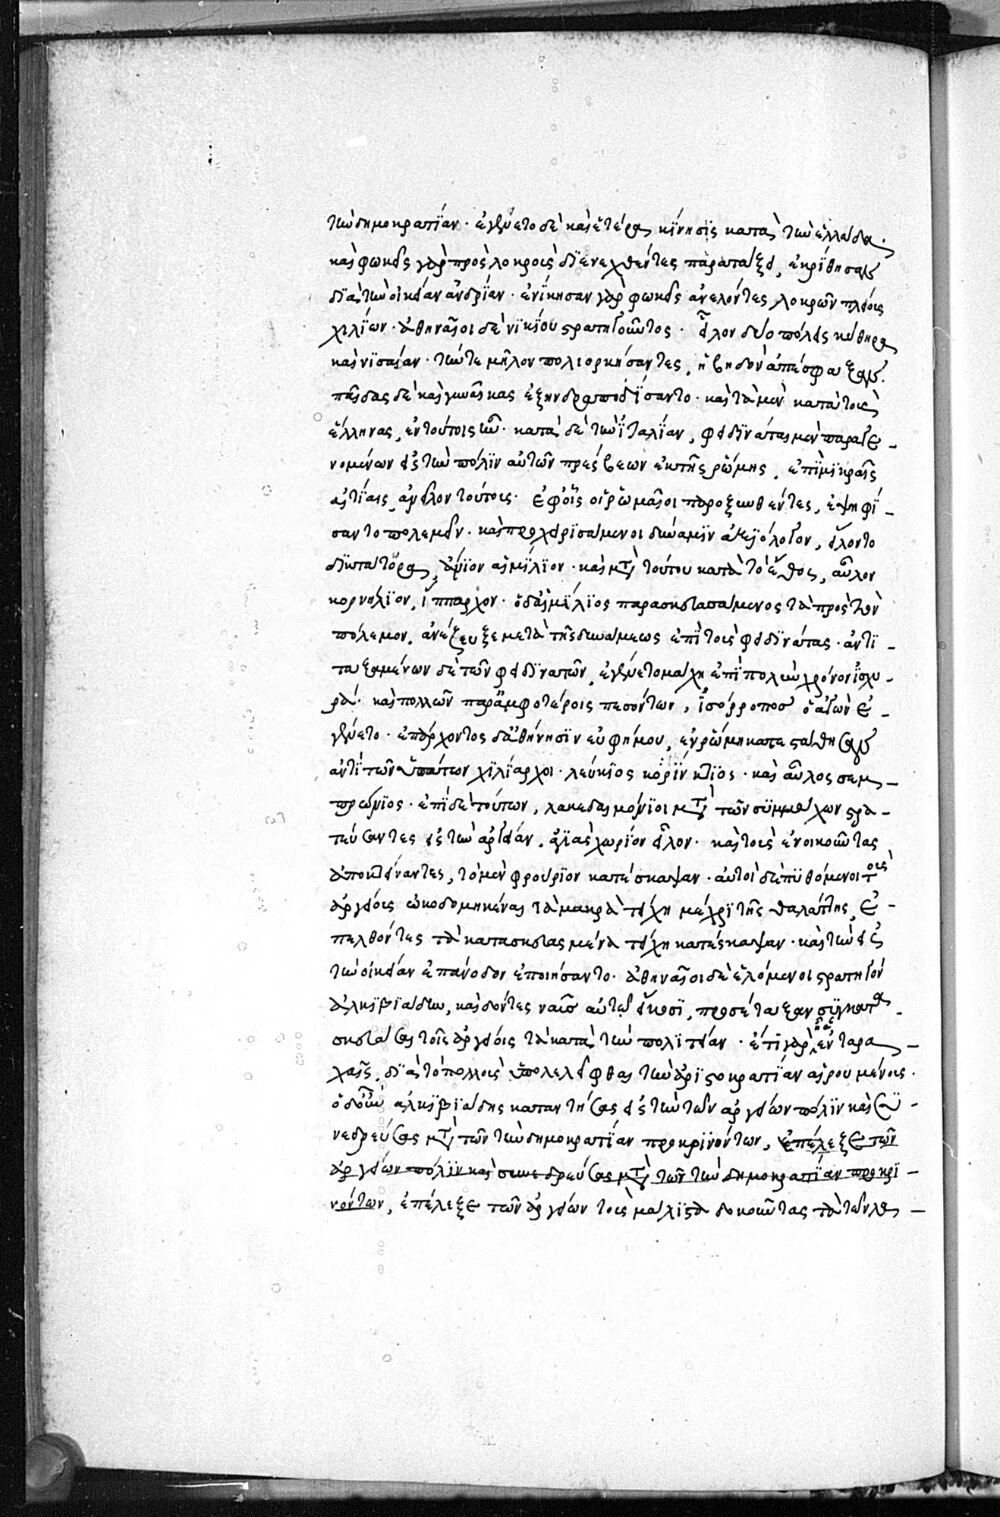 τὴν δημοκρατίαν· ἐγένετο δὲ καὶ ἑτέρα κίνησις κατὰ τὴν ἑλλάδα·
καὶ φωκεῖς γὰρ πρὸς λοκροὺς διενεχθέντες παρατάξει, ἐκρίθησαν
διὰ τὴν οἰκείαν ἀνδρίαν· ἐνίκησαν γὰρ φωκεῖς ἀνελόντες λοκρῶν πλείους
χιλίων· ἀθηναῖοι δὲ νικίου στρατηγοῦντος· εἷλον δύο πόλεις κύθηρα
καὶ νίσαιαν· τήν τε μῆλον πολιορκήσαντες, ἡβηδὸν ἀπέσφαξαν·
παῖδας δὲ καὶ γυναῖκας ἐξηνδραποδίσαντο· καὶ τὰ μὲν κατὰ τοὺς
ἕλληνας, ἐν τούτοις ἦν· κατὰ δὲ τὴν ἰταλίαν, φιδινάται μὲν παραγε-
νομένων εἰς τὴν πόλιν αὐτῶν πρέσβεων ἐκ τῆς ῥώμης, ἐπὶ μικραῖς
αἰτίαις ἀνεῖλον τούτους· ἐφ' οἷς οἱ ῥωμαῖοι παροξυνθέντες, ἐψηφί-
σαντο πολεμεῖν· καὶ προχειρισάμενοι δύναμιν ἀξιόλογον, εἵλοντο
δικτάτορα, ἄνιον αἰμίλιον· καὶ μετὰ τούτου κατὰ τὸ ἔθος, αὖλον
κορνήλιον, ἵππαρχον· ὁ δ' αἰμίλιος παρασκευασάμενος τὰ πρὸς τὸν
πόλεμον, ἀνέζευξε μετὰ τῆς δυνάμεως ἐπὶ τοὺς φιδινάτας· ἀντι-
ταξαμένων δὲ τῶν φιδινατῶν, ἐγένετο μάχη ἐπὶ πολὺν χρόνον ἰσχυ-
ρά· καὶ πολλῶν παρ' ἀμφοτέροις πεσόντων, ἰσόρροπος ὁ ἀγὼν ἐ-
γένετο· ἐπ' ἄρχοντος δ' ἀθήνησιν εὐφήμου, ἐν ῥώμη κατεστάθησαν
ἀντὶ τῶν ὑπάτων χιλίαρχοι· λεύκιος κοΐν κτιος· καὶ αὖλος σεμ-
πρώνιος· ἐπὶ δὲ τούτων, λακεδαιμόνιοι μετὰ τῶν συμμάχων στρα-
τεύσαντες εἰς τὴν ἀργείαν, ἁγίας χωρίον εἷλον· καὶ τοὺς ἐνοικοῦντας
ἀποκτείναντες, τὸ μὲν φρούριον κατέσκαψαν· αὐτοὶ δὲ πυθόμενοι τοὺς
ἀργείους ὠκοδομηκέναι τὰ μακρὰ τείχη μέχρι τῆς θαλάττης, ἐ-
πελθόντες τὰ κατασκευασμένα τείχη κατέσκαψαν· καὶ τὴν εἰς
τὴν οἰκείαν ἐπάνοδον ἐποιήσαντο· ἀθηναῖοι δὲ ἑλόμενοι στρατηγὸν
ἀλκιβιάδην, καὶ δόντες ναῦς αὐτῷ εἴκοσι, προσέταξαν συγκατα-
σκευάσαι τοῖς ἀργείοις τὰ κατὰ τὴν πολιτείαν· ἔτι γὰρ ἦσαν ἐν ταρα-
χαῖς, διὰ τὸ πολλοὺς ὑπολελεῖφθαι τῶν ἀριστοκρατίαν αἱρουμένους·
ὁ δ' οὖν ἀλκιβιάδης καταντήσας εἰς τὴν τῶν ἀργείων πόλιν καὶ συ-
νεδρεύσας μετὰ τῶν τὴν δημοκρατίαν προκρινόντων, ἐπέλεξε τῶν
ἀργείων πόλιν καὶ συνεδρεύσας μετὰ τῶν τὴν δημοκρατίαν προκρι-
νόντων, ἐπέλεξε τῶν ἀργείων τοὺς μάλιστα δοκοῦντας τὰ τῶν λα-